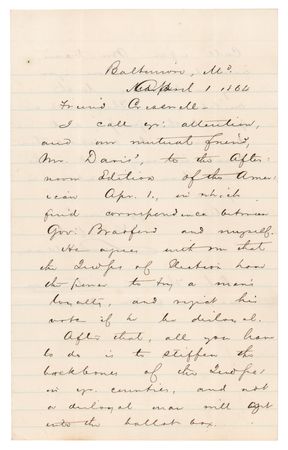 Baltimore, Md.
April 1 1864
Friend Creswell—
I call yr. attention,
and our mutual friend,
Mr. Davis', to the After-
noon Edition of the Amer-
ican Apr. 1., in which
find correspondence between
Gov: Bradford and myself.
He agrees with me that
the Judges of Election have
the power to try a man's
loyalty, and reject his
vote if he be disloyal.
After that, all you have
to do is to stiffen the
backbones of the Judges
in yr. counties, and not
a disloyal man will get
into the ballot box.